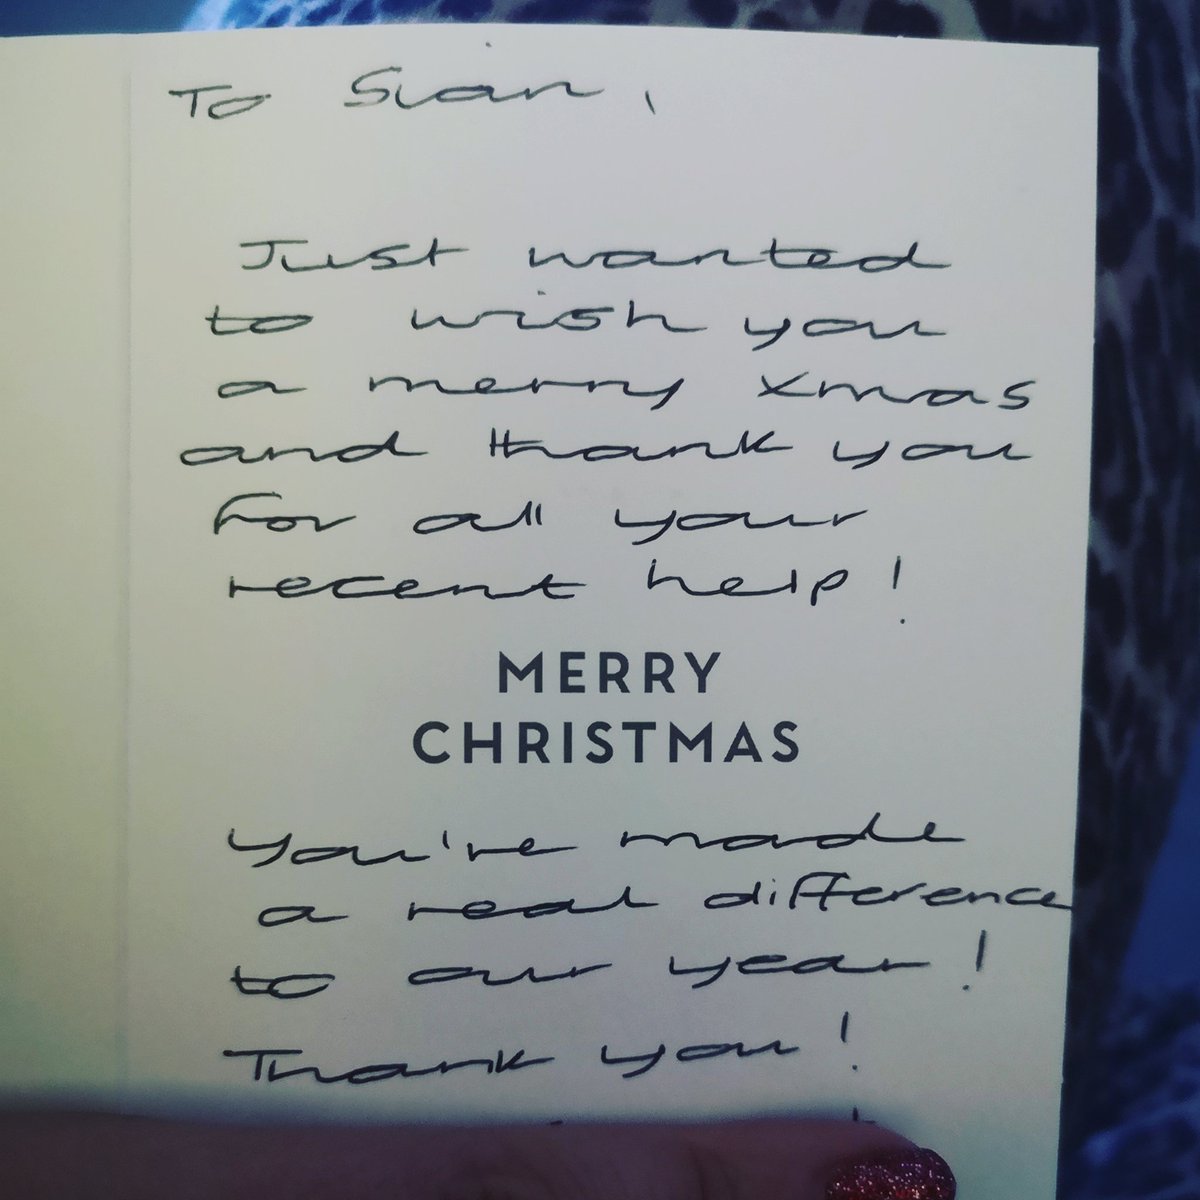 To Sian,
Just wanted
to wish you
a merry xmas
and thank you
for all your
recent help!
MERRY
CHRISTMAS
You've made
a real difference
to our year!
Thank you!